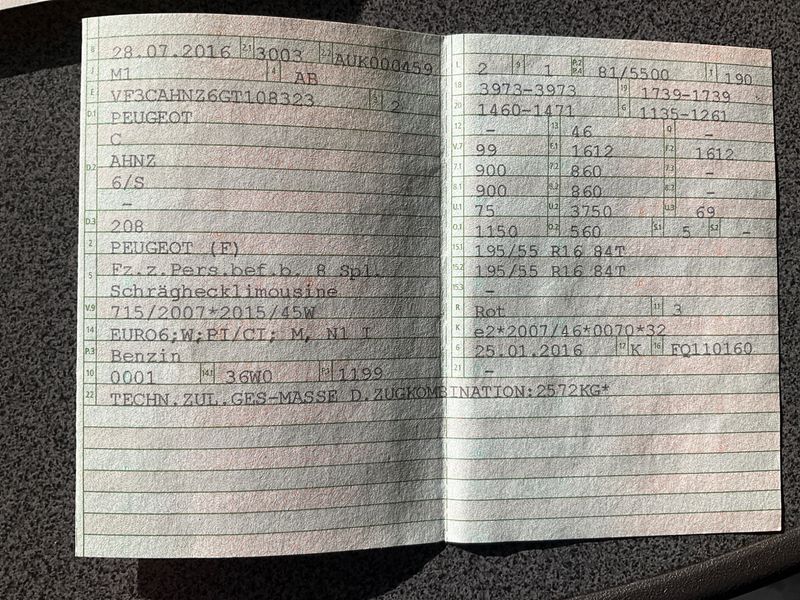 B 28.07.2016 2.1 3003 2.2 AUK000459
J M1 4 AB
E VF3CAHNZ6GT108323 3 2
D.1 PEUGEOT
C
D.2 AHNZ
6/S
-
D.3 208
2 PEUGEOT (F)
5 Fz.z.Pers.bef.b. 8 Spl.
Schräghecklimousine
V.9 715/2007*2015/45W
14 EURO6;W;PI/CI; M, N1 I
P.3 Benzin
10 0001 14.1 36W0 P.1 1199
22 TECHN.ZUL.GES-MASSE D.ZUGKOMBINATION:2572KG*
L 2 9 1 P.2 P.4 81/5500 T 190
18 3973-3973 19 1739-1739
20 1460-1471 G 1135-1261
12 - 13 46 Q -
V.7 99 F.1 1612 F.2 1612
7.1 900 7.2 860 7.3 -
8.1 900 8.2 860 8.3 -
U.1 75 U.2 3750 U.3 69
O.1 1150 O.2 560 S.1 5 S.2 -
15.1 195/55 R16 84T
15.2 195/55 R16 84T
15.3 -
R Rot 11 3
K e2*2007/46*0070*32
6 25.01.2016 17 K 16 FQ110160
21 -